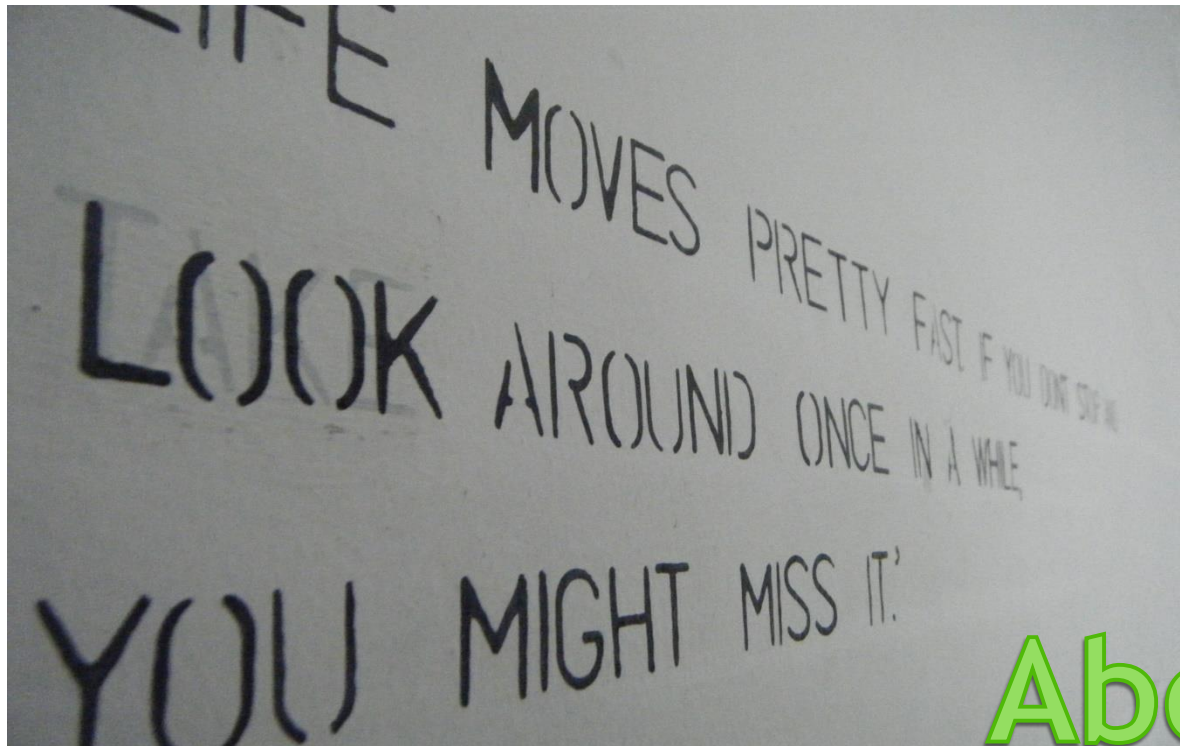 LIFE MOVES PRETTY FAST IF YOU DONT STOP
TAKE
LOOK AROUND ONCE IN A WHILE,
YOU MIGHT MISS IT.'